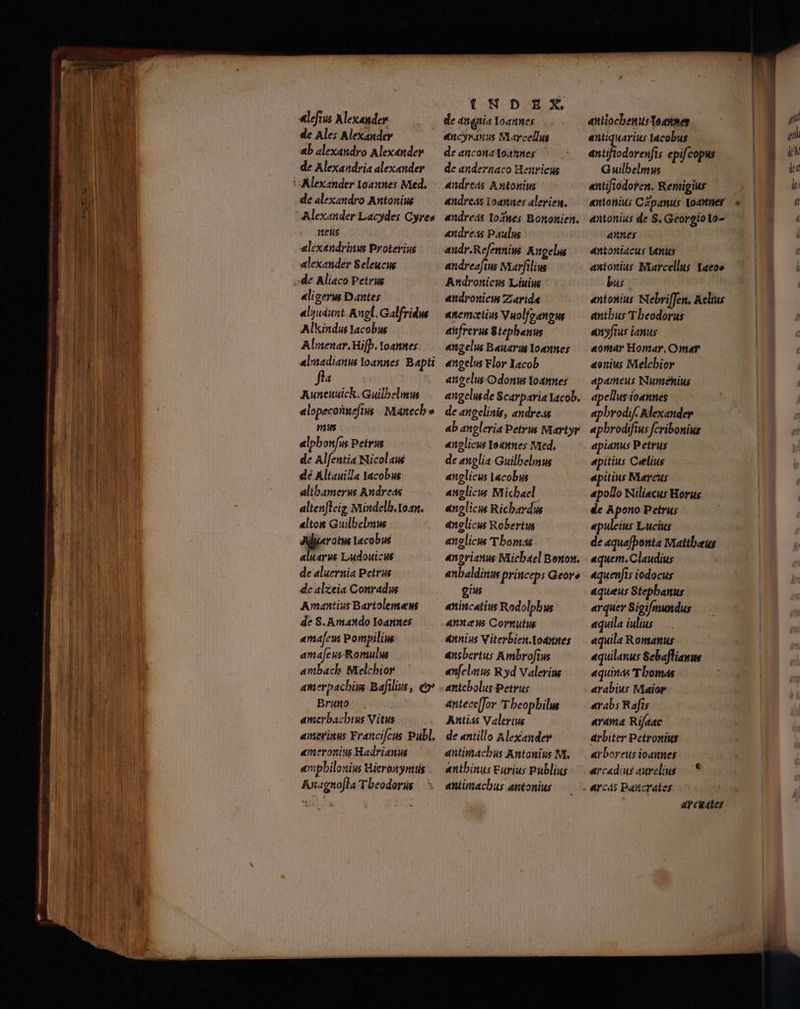 INDEX.
alefius Alexander
de Ales Alexander
ab alexandro Alexander
de Alexandria alexander
Alexander Ioannes Med.
de alexandro Antonius
Alexander Lacydes Cyre-
neus
alexandrinus Proterius
alexander Seleucus
de Aliaco Petrus
aligerus Dantes
alaudunt. Angl. Galfridus
Alkindus Iacobus
Almenar. Hisp. Ioannes
almadianus Ioannes Bapti
sta
Auneuuick. Guilhelmus
alopeconnesius Manech-
mus
alphonsus Petrus
de Alsentia Nicolaus
de Altauilla Iacobus
althamerus Andreas
altensteig Mindelh. Ioan.
alton Guilhelmus
Aluarotus Iacobus
aluarus Ludouicus
de aluernia Petrus
de alzeia Conradus
Amantius Bartolemeus
de S. Amando Ioannes
amaseus Pompilius
amaseus Romulus
ambach Melchior
amerpachius Basilius, &
Bruno
amerbachius Vitus
amerinus Franciscus Publ.
ameronius Hadrianus
amphilonius Hieronymus
Anagnosta Theodorus
de angnia Ioannes
ancyranus Marcellus
de ancona Ioannes
de andernaco Henricus
andreas Antonius
andreas Ioannes alerien.
andreas Ioānes Bononien.
andreas Paulus
andr. Resennius Angelus
andreasius Marsilius
Andronicus Liuius
andronicus Zarida
anemœtius Vuolfgangus
anfrerus Stephanus
angelus Bauarus Ioannes
angelus Flor Iacob
angelus Odonus Ioannes
angelus de Scarparia Iacob.
de angelinis, andreas
ab angleria Petrus Martyr
anglicus Ioannes Med.
de anglia Guilhelmus
anglicus Iacobus
anglicus Michael
anglicus Richardus
anglicus Robertus
anglicus Thomas
angrianus Michael Bonon.
anhaldinus princeps Geor-
gius
anincatius Rodolphus
anneus Cornutus
annius Viterbien. Ioannes
ansbertus Ambrosius
anselmus Ryd Valerius
antebolus Petrus
antecessor Theophilus
Antias Valerius
de antillo Alexander
antimachus Antonius M.
anthinus Furius Publius
antimachus antonius
antiochenus Ioannes
antiquarius Iacobus
antisiodorensis episcopus
Guilhelmus
antisiodoren. Remigius
antonius Cāpanus Ioannes
antonius de S. Georgio Io-
annes
antoniacus Ianus
antonius Marcellus Iaco-
bus
antonius Nebrissen. Aelius
anthus Theodorus
anysius ianus
aomar Homar. Omar
aonius Melchior
apameus Numenius
apellus ioannes
aphrodis. Alexander
aphrodisius scribonius
apianus Petrus
apitius Cælius
apitius Marcus
apollo Niliacus Horus
de Apono Petrus
apuleius Lucius
de aquasponta Matthæus
aquem. Claudius
aquensis iodocus
aqueus Stephanus
arquer Sigismundus
aquila iulius
aquila Romanus
aquilanus Sebastianus
aquinas Thomas
arabius Maior
arabs Rasis
arama Risaac
arbiter Petronius
arboreus ioannes
arcadius aurelius
arcas Pancrates